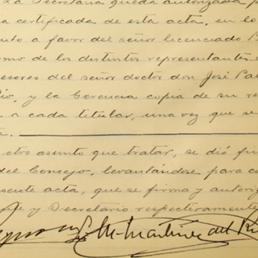 La Secretaría queda autorizada p
ia certificada de esta acta, en lo
nto a favor del señor licenciado P
omo de los distintos representantes
esores del señor doctor don José Pa
io, y la Gerencia copia de su re
a cada titular, una vez que se
otro asunto que tratar, se dió fi
del Consejo, levantándose para c
sente acta, que se firma y autori
te y Secretario respectivamente
M. Martínez del Rí